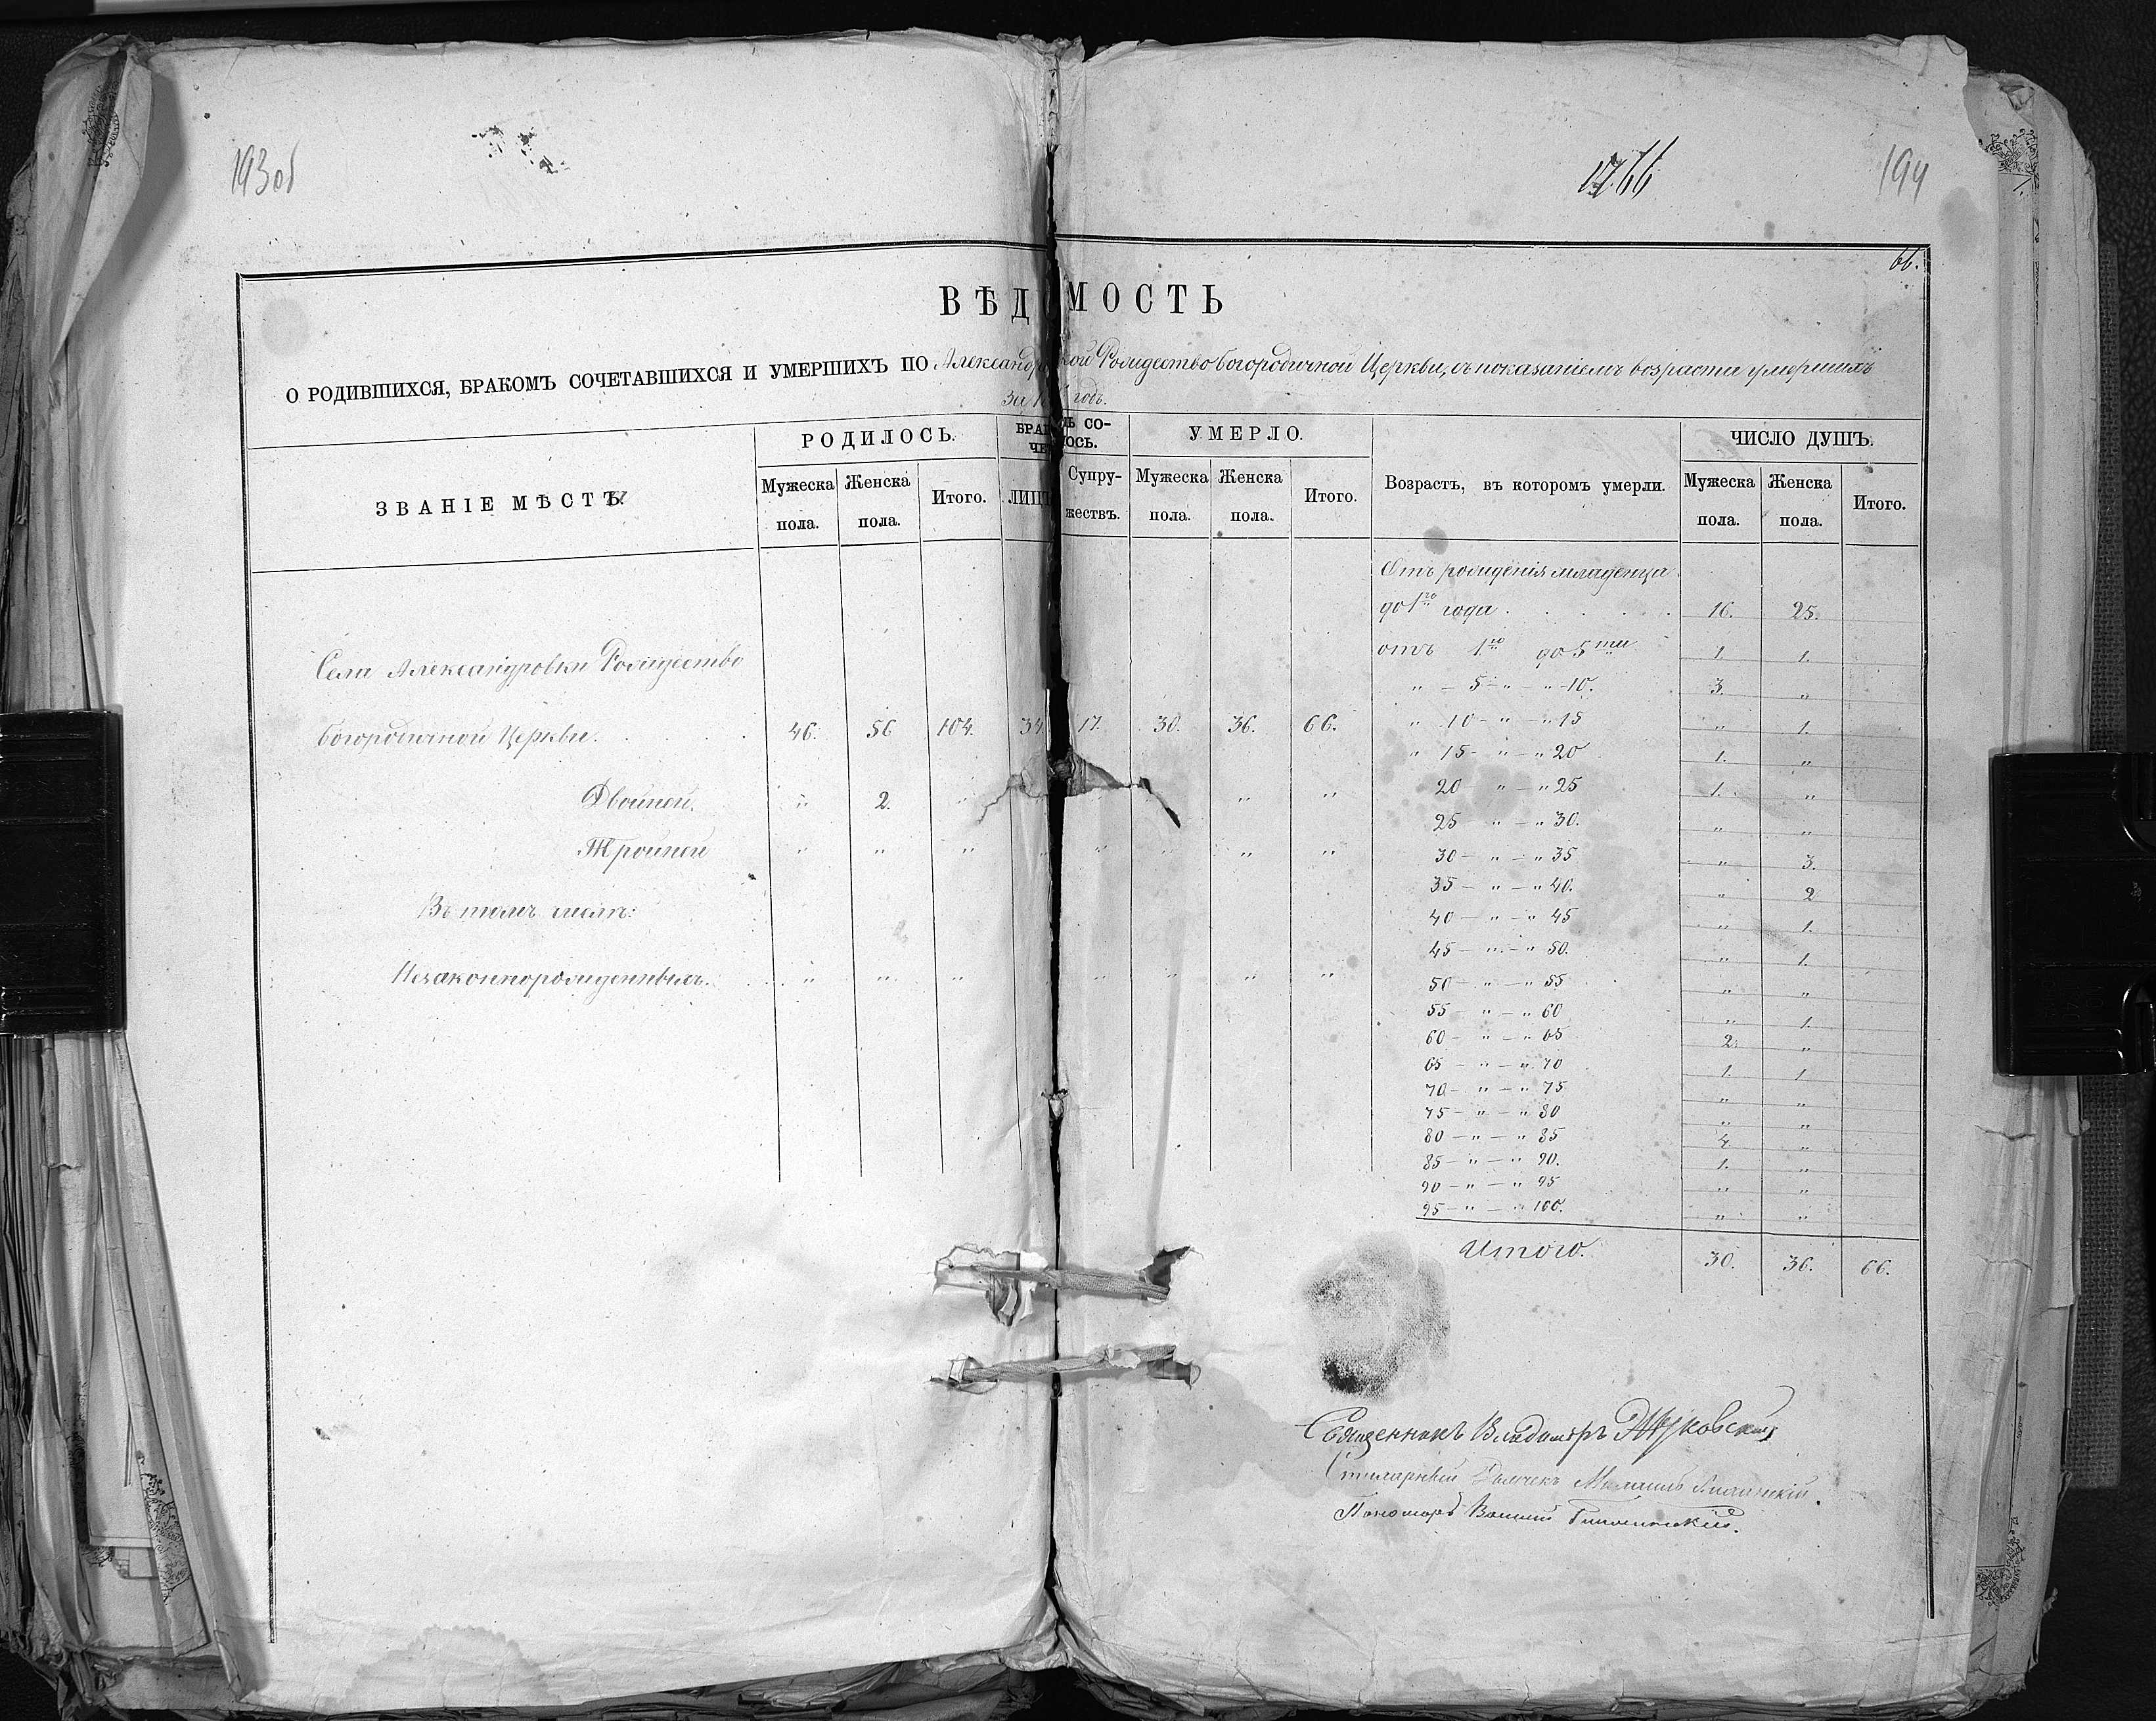 193об
194
66.
ВѢДОМОСТЬ
О РОДИВШИХСЯ, БРАКОМЪ СОЧЕТАВШИХСЯ И УМЕРШИХЪ ПО Александровской Рождество богородичной Церкви, съ показаніемъ возраста умершихъ
за годъ.
ЗВАНІЕ МѢСТЪ.
РОДИЛОСЬ.
Мужеска пола.
Женска пола.
Итого.
БРАКОМЪ СОЧЕТАЛОСЬ.
ЛИЦЪ
Супружествъ.
УМЕРЛО.
Мужеска пола.
Женска пола.
Итого.
Возрастъ, въ которомъ умерли.
ЧИСЛО ДУШЪ.
Мужеска пола.
Женска пола.
Итого.
Села Александровки Рождество
богородичной Церкви. 46. 56 104. 34. 17. 30. 36. 66.
Двойней. " 2. " " "
Тройней " " " " " " " "
Въ томъ числѣ:
Незаконнорожденныхъ. " " " " " " "
Отъ рожденія младенца
до 1го года. 16. 25.
отъ 1го до 5ти 1. 1.
" — 5 — " — " — 10. 3. "
" 10 — " — " 15 " 1.
" 15 — " — " 20 1. "
20 — " — " 25 1. "
25 — " — " 30. " "
30 — " — " 35 " 3.
35 — " — " 40. " 2
40 — " — " 45 " 1.
45 — " — " 50. " 1.
50 — " — " 55 " "
55 — " — " 60 " 1.
60 — " — " 65 2. "
65 — " — " 70 1. 1.
70 — " — " 75 " "
75 — " — " 80 " "
80 — " — " 85 4. "
85 — " — " 90. 1. "
90 — " — " 95 " "
95 — " — " 100. " "
Итого. 30. 36. 66.
Священникъ Владиміръ Жуковскій
Пономарь